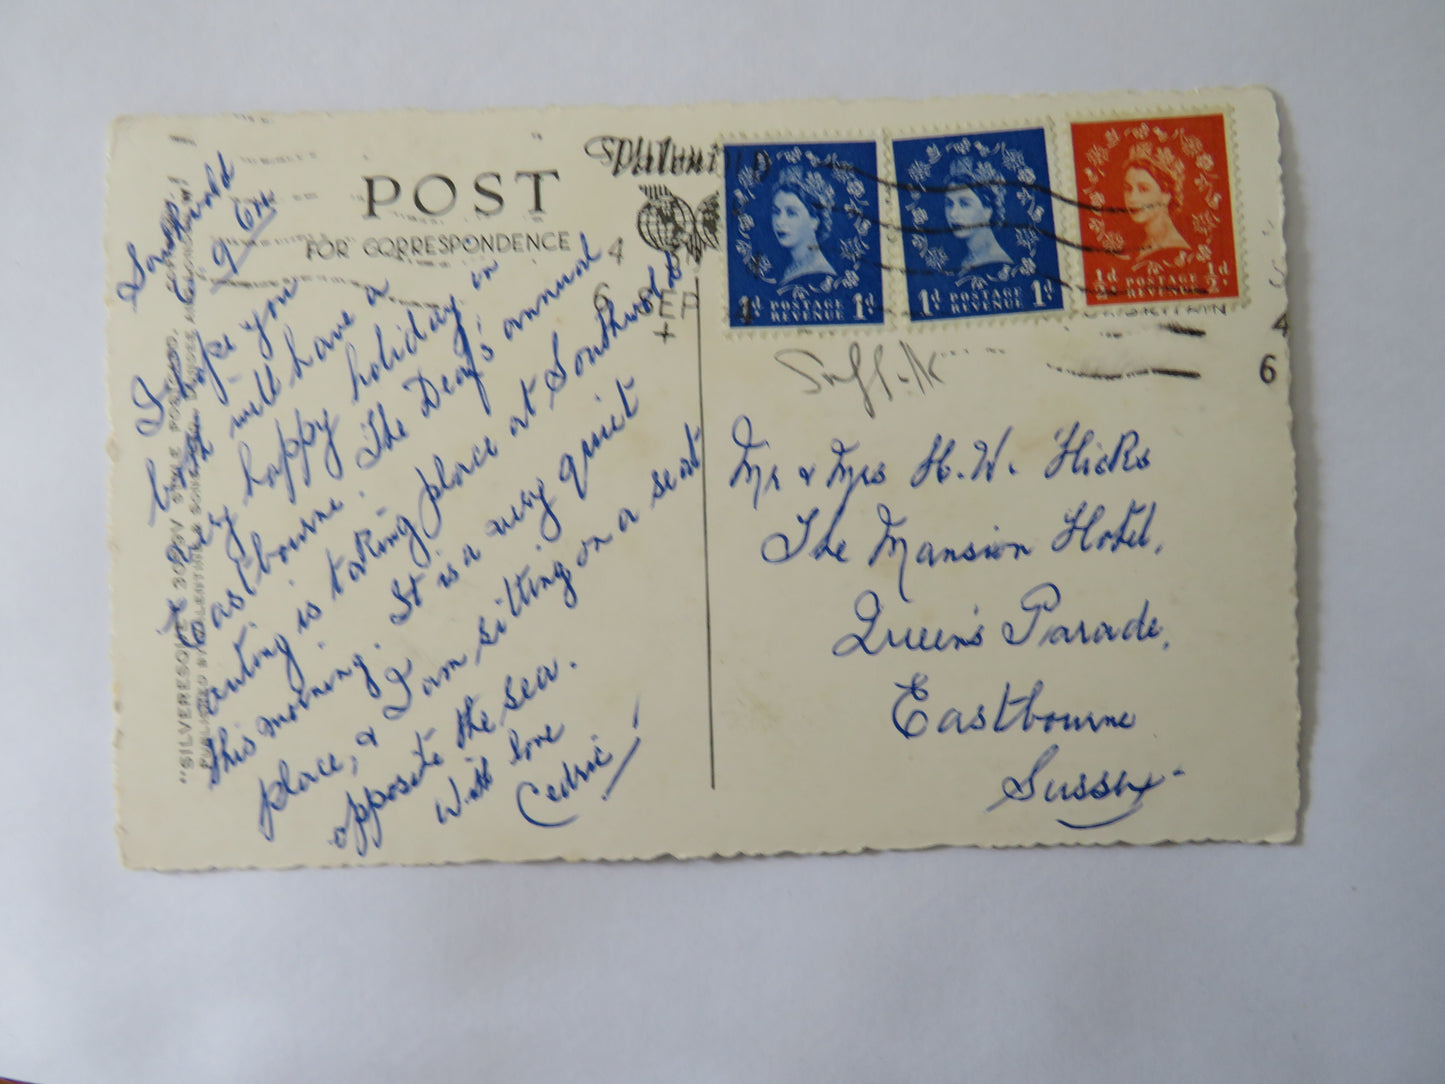 POST
FOR CORRESPONDENCE
Southwold
I hope you
both will have a
very happy holiday in
Eastbourne. The Deaf's annual
outing is taking place at Southwold
this morning. It is a very quiet
place, & I am sitting on a seat
opposite the sea.
With love
Cedric!
"SILVERESQUE"
STYLE POSTCARD.
PUBLISHED BY VALENTINE & SONS, LTD., DUNDEE AND LONDON
4
6 SEP
+
4
6
1d POSTAGE REVENUE 1d
1d POSTAGE REVENUE 1d
½d POSTAGE REVENUE ½d
Suffolk
Mr & Mrs H. W. Hicks
The Mansion Hotel,
Queen's Parade,
Eastbourne
Sussex